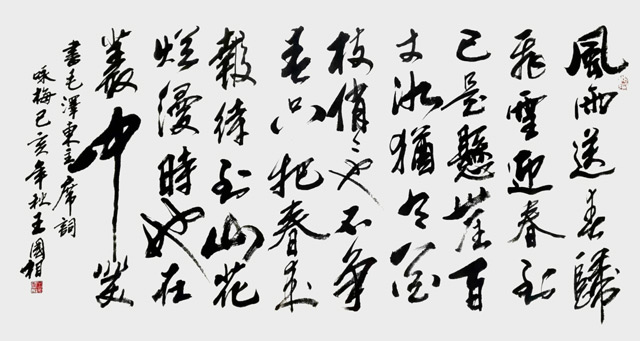 風雨送春歸
飛雪迎春到
已是懸崖百
丈冰猶有花
枝俏〻也不爭
春只把春來
報待到山花
爛漫時她在
叢中笑
書毛澤東主席詞
咏梅己亥年秋王國相